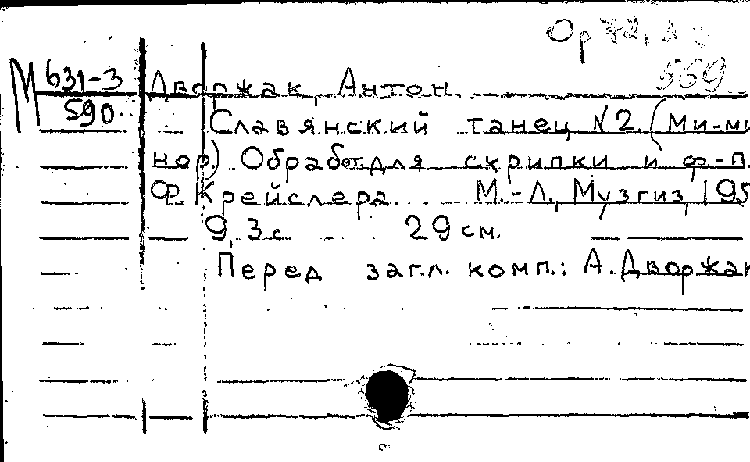 Ор 72, 2
569
М 631-3
590.
Дворжак, Антон.
Славянский танец №2. (Ми-ми-
нор) Обраб. для скрипки и ф-п.
Ф. Крейслера. М.-Л., Музгиз, 195
9, 3 с. 29 см.
Перед загл. комп.: А. Дворжак